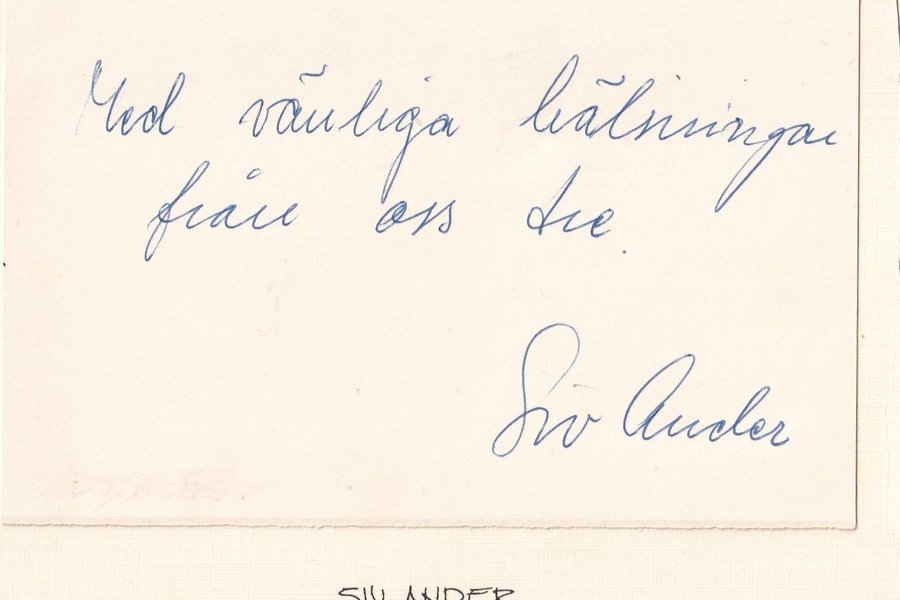 Med vänliga hälsningar
från oss tre.
Siv Ander
SIV ANDER